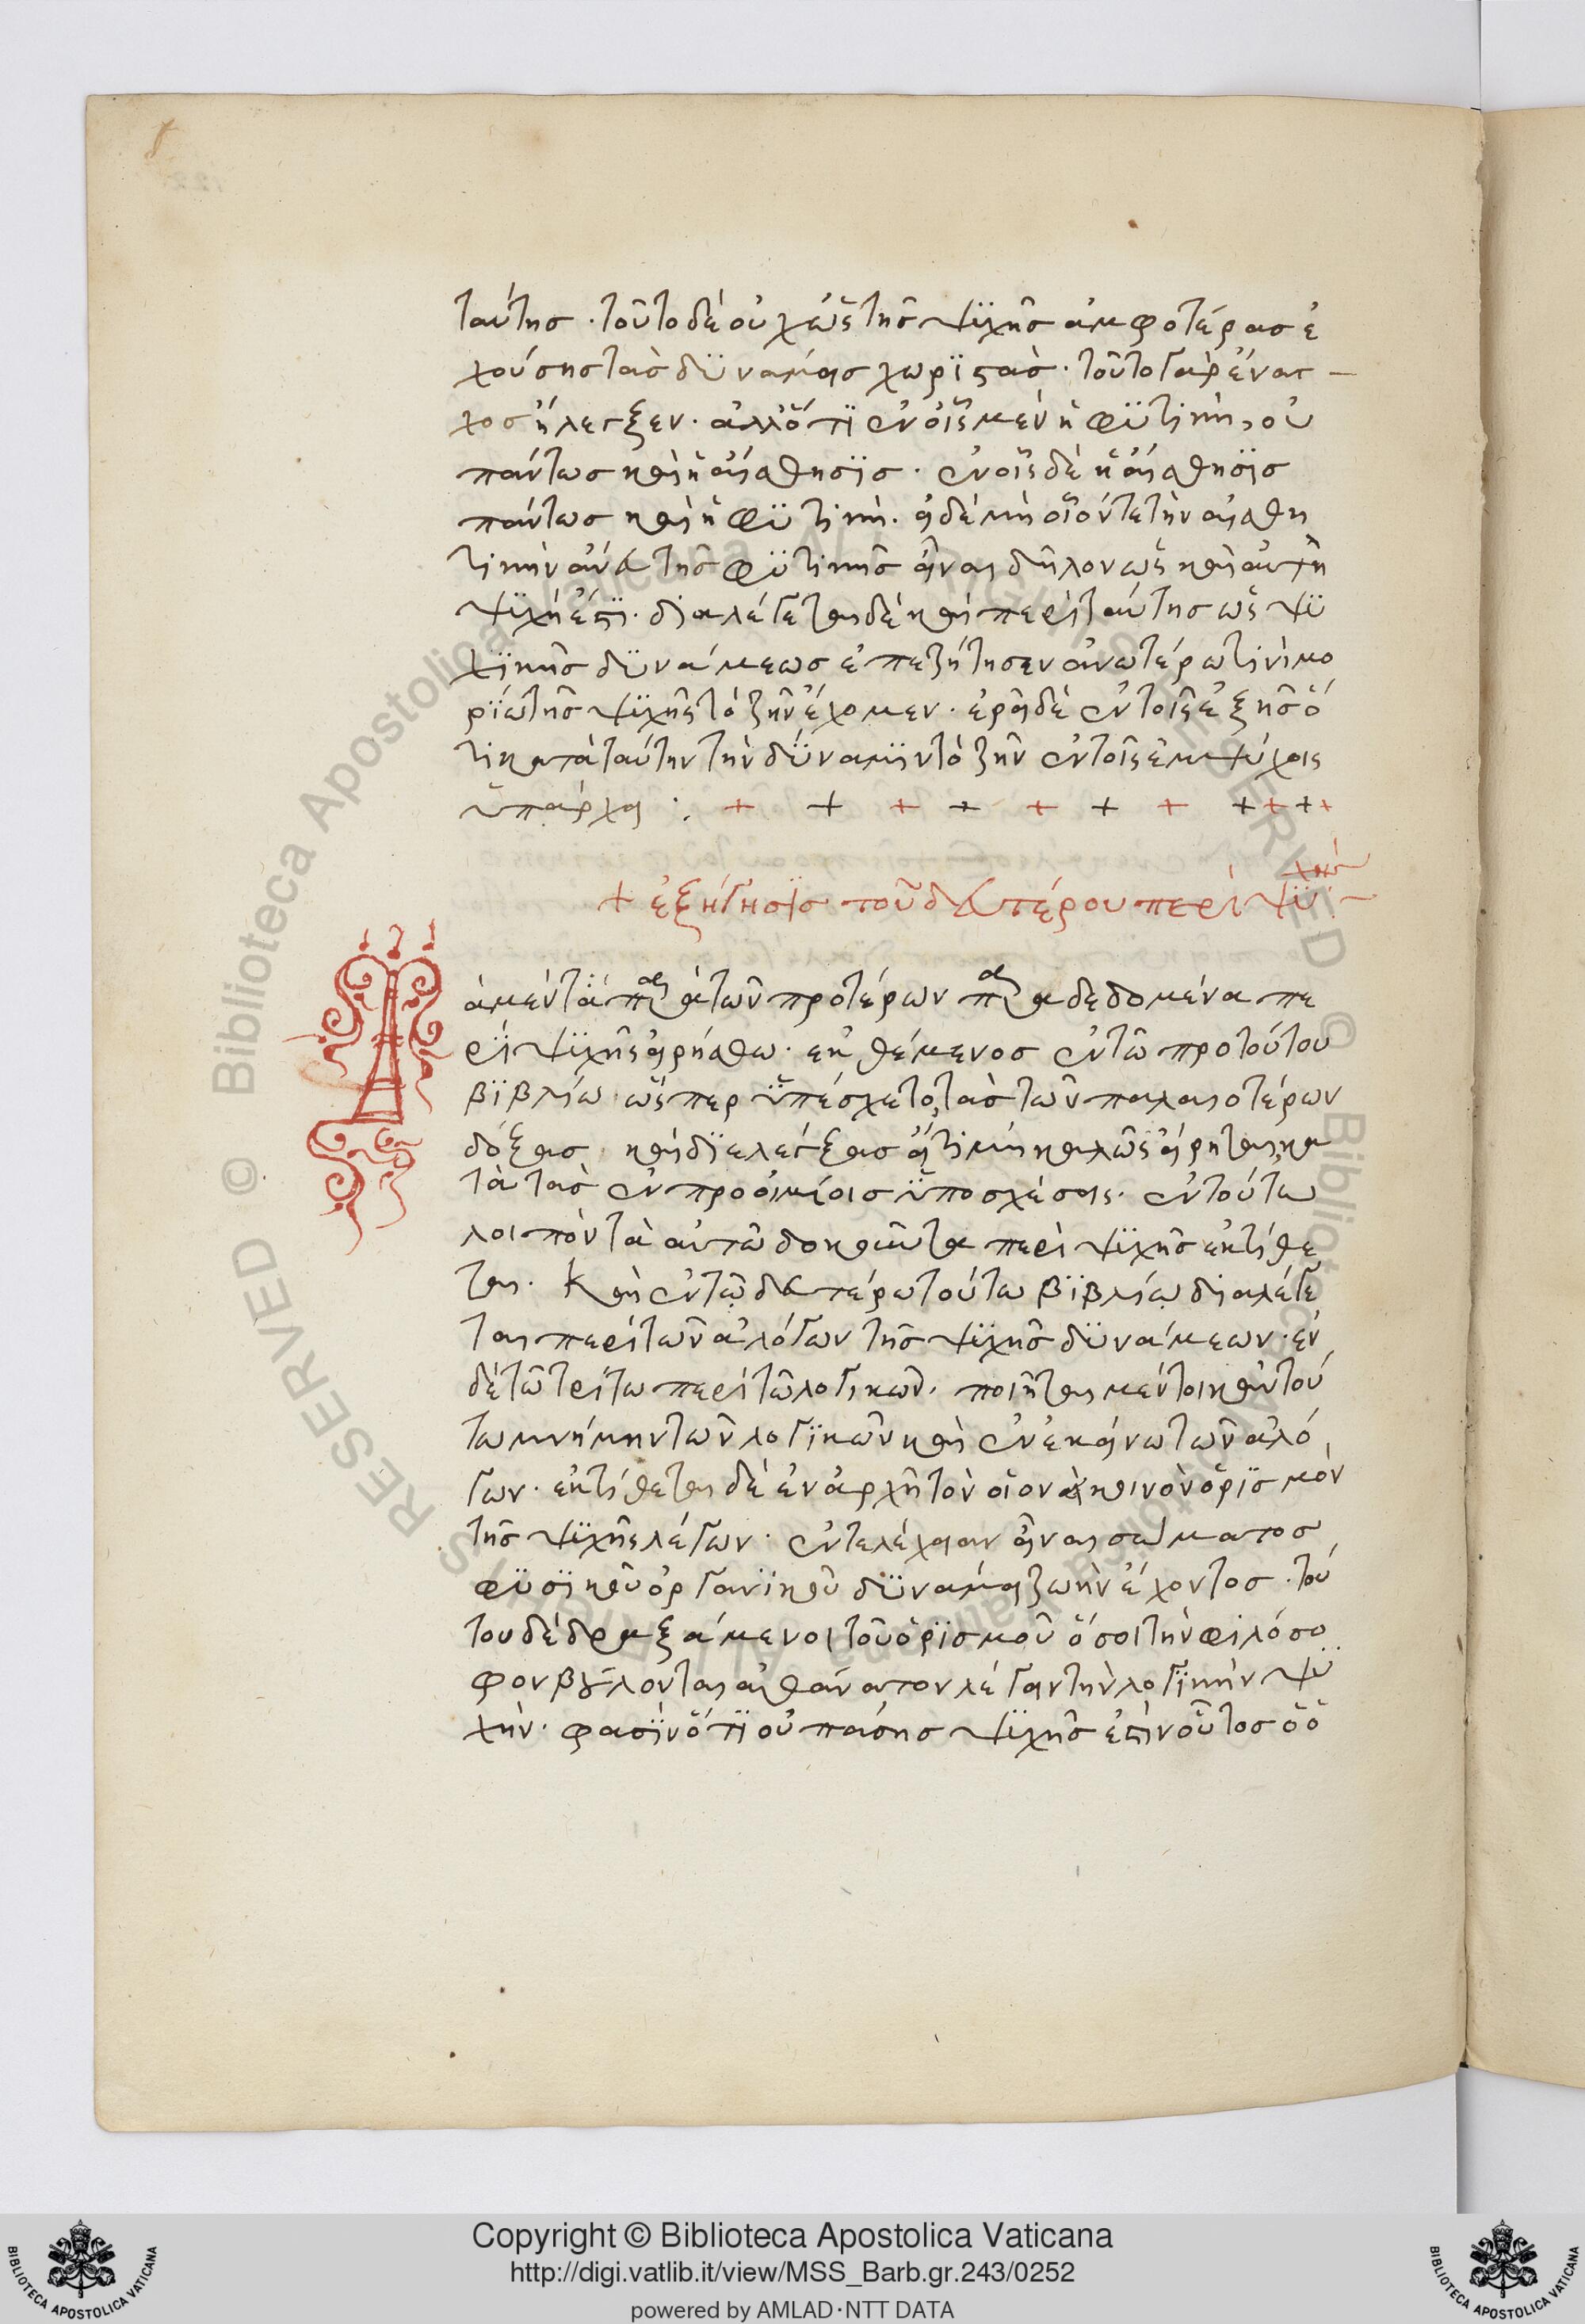 ταύτης · τοῦτο δὲ οὐχ ὡς τῆς ψϋχῆς ἀμφοτέρας ἐ
χούσης τὰς δϋνάμεις χωρϊστὰς · τοῦτο γὰρ ἔναγ –
χος ἤλεγξεν · ἀλλ' ὅτϊ ἐν οἷς μὲν ἡ φϋτικὴ, οὐ
πάντως καὶ ἡ αἴσθησϊς · ἐν οἷς δὲ ἡ αἴσθησϊς
πάντως καὶ ἡ φϋτικὴ. εἰ δὲ μὴ οἷόν τε τὴν αἰσθη
τικὴν ἄνευ τῆς φϋτικῆς εἶναι δῆλον ὡς καὶ αὐτὴ
ψϋχή ἐστϊ. διαλέγεται δὲ καὶ περὶ ταύτης ὡς ψϋ
χϊκῆς δϋνάμεως ἐπεζήτησεν ἀνωτέρω τίνι μο
ρίω τῆς ψϋχῆς τὸ ζῆν ἔχομεν · ἐρεῖ δὲ ἐν τοῖς ἑξῆς ὅ
τι κατὰ ταύτην τὴν δύναμϊν τὸ ζῆν ἐν τοῖς ἐμψύχοις
ὑπάρχει : + + + + + + + + + + +
+ ἐξήγησϊς τοῦ δευτέρου περὶ ψϋχῆς
Τὰ μὲν τὰ παρὰ τῶν προτέρων παραδεδομένα πε
ρὶ ψϋχῆς εἰρήσθω · ἐκθέμενος ἐν τῶ πρὸ τούτου
βϊβλίω ὥσπερ ὑπέσχετο, τὰς τῶν παλαιοτέρων
δόξας καὶ δϊελέγξας εἴ τι μὴ καλῶς εἴρηται, κα
τὰ τὰς ἐν προοιμίοις ὑποσχέσεις · ἐν τούτω
λοιπὸν τὰ αὐτῶ δοκοῦντα περὶ ψϋχῆς ἐκτίθε
ται. Καὶ ἐν τῶ δευτέρω τούτω βϊβλίω διαλέγε
ται περὶ τῶν ἀλόγων τῆς ψϋχῆς δϋνάμεων · ἐν
δὲ τῶ τρίτω περὶ τῶν λογικῶν. ποιεῖται μέντοι κἀν τού
τω μνήμην τῶν λογϊκῶν καὶ ἐν ἐκείνω τῶν ἀλό
γων · ἐκτίθεται δὲ ἐν ἀρχῆ τὸν οἷον κοινὸν ὁρϊσμὸν
τῆς ψϋχῆς λέγων · ἐντελέχειαν εἶναι σώματος
φϋσϊκοῦ ὀργανϊκοῦ δϋνάμει ζωὴν ἔχοντος · τού
του δὲ δραξάμενοι τοῦ ὁρϊσμοῦ ὅσοι τὴν φιλόσο
φον βούλονται ἀθάνατον λέγειν τὴν λογϊκὴν ψϋ
χὴν · φασϊν ὅτϊ οὐ πάσης ψϋχῆς ἐστὶν οὗτος ὁ ὁ
Copyright © Biblioteca Apostolica Vaticana
http://digi.vatlib.it/view/MSS_Barb.gr.243/0252
powered by AMLAD·NTT DATA